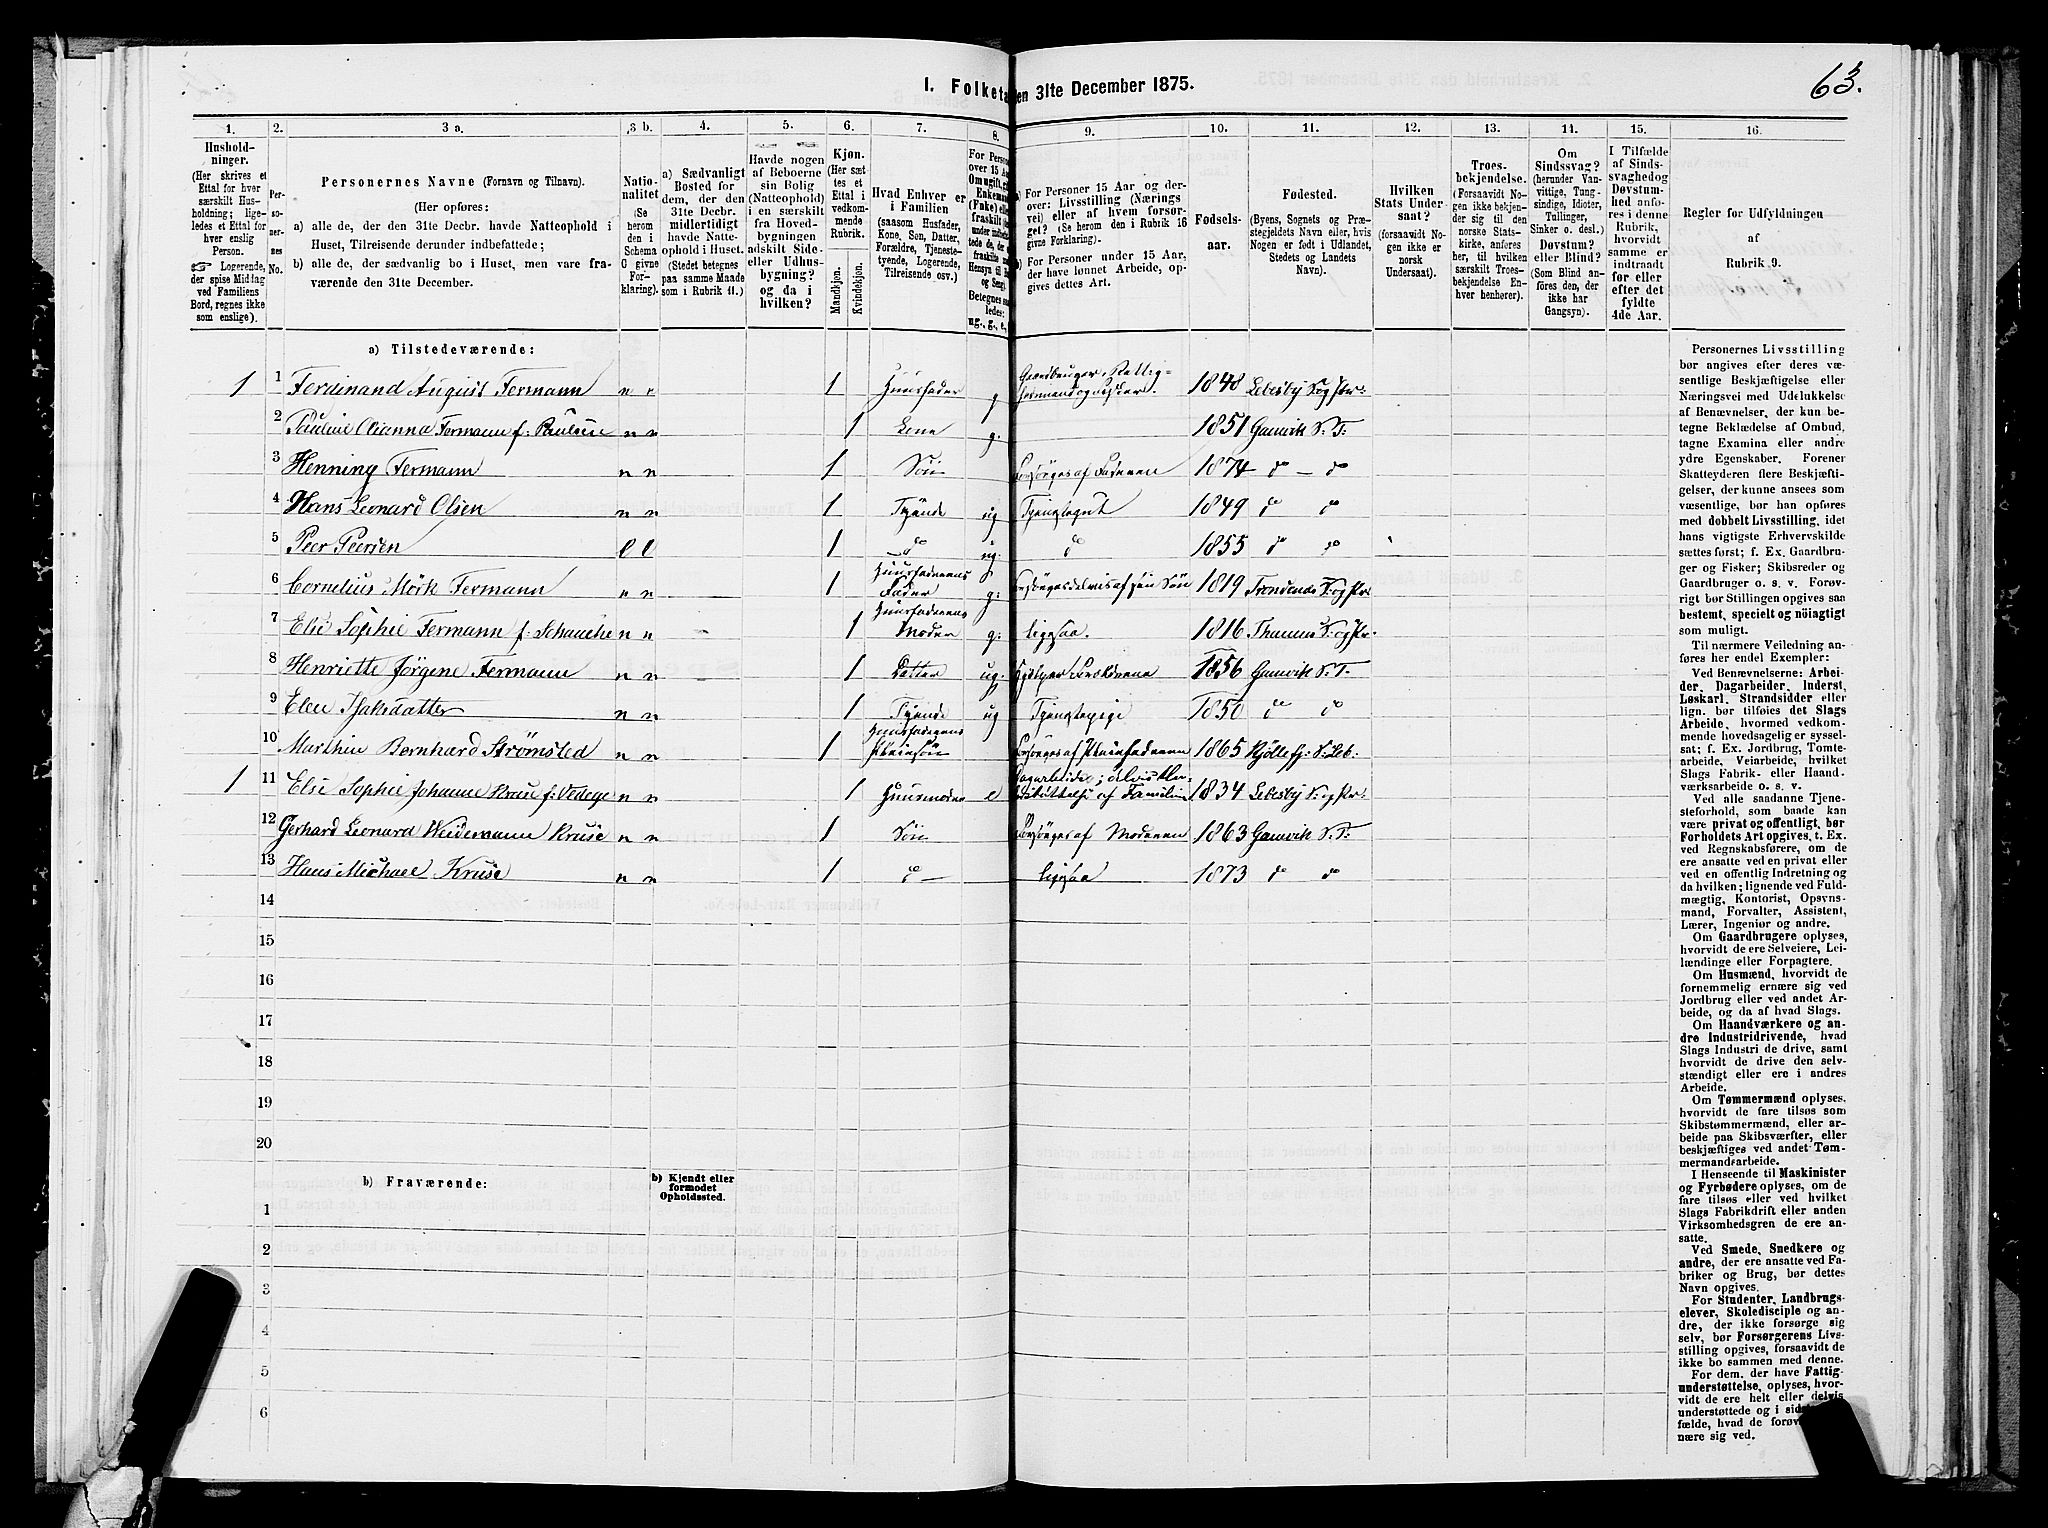 I. Folketæ
en 31te December 1875.
63.
1.
2.
3 a.
3 b.
4.
5.
6.
7.
8.
9.
10.
11.
12.
13.
14.
15.
16.
Hushold-
ninger.
(Her skrives et
Ettal for hver
særskilt Hus-
holdning; lige-
ledes et Ettal for
hver enslig
Person.
☞ Logerende,
der spise Middag
ved Familiens
Bord, regnes ikke
som enslige).
Per-
so-
ner-
nes
No.
Personernes Navne (Fornavn og Tilnavn).
(Her opføres:
a) alle de, der den 31te Decbr. havde Natteophold i
Huset, Tilreisende derunder indbefattede;
b) alle de, der sædvanlig bo i Huset, men vare fra-
værende den 31te December.
Natio-
nalitet
(Se
herom
den i
Schema
C givne
For-
klaring).
a) Sædvanligt
Bosted for
dem, der den
31te Decbr.
midlertidigt
havde Natte-
ophold i Huset.
(Stedet betegnes
paa samme Maade
som i Rubrik 11.)
Havde nogen
af Beboerne
sin Bolig
(Natteophold)
i en særskilt
fra Hoved-
bygningen
adskilt Side-
eller Udhus-
bygning?
og da i
hvilken?
Kjøn.
(Her sæt-
tes et
Ettal i
vedkom-
mende
Rubrik.
Mandkjøn.
Kvindekjøn.
Hvad Enhver er
i Familien
(saasom Husfader,
Kone, Søn, Datter,
Forældre, Tjeneste-
tyende, Logerende,
Tilreisende osv.)
For Person
over 15 Aa
Om ugift, gi
Enkemand
(Enke) elle
fraskilt
Betegnes saa
ledes:
ug., g., e.,
a) For Personer 15 Aar og der-
over: Livsstilling (Nærings
vei) eller af hvem forsør-
get? (Se herom den i Rubrik 16
givne Forklaring).
b) For Personer under 15 Aar,
der have lønnet Arbeide, op-
gives dettes Art.
Fødsels-
aar.
Fødested.
(Byens, Sognets og Præ-
stegjeldets Navn eller, hvis
Nogen er født i Udlandet,
Stedets og Landets
Navn).
Hvilken
Stats Under-
saat?
(forsaavidt No-
gen ikke er
norsk
Undersaat).
Troes-
bekjendelse.
(Forsaavidt No-
gen ikke bekjen-
der sig til den
norske Stats-
kirke, an-
føres, til hvilken
særskilt Troes-
bekjendelse En-
hver henhører).
Om
Sindssvag?
(herunder Van-
vittige, Tung-
sindige, Idioter,
Tullinger,
Sinker o. desl.)
Døvstum?
eller Blind?
(Som Blind an-
føres den, der
ikke har
Gangsyn).
I Tilfælde
af Sinds-
svaghed og
Døvstum-
hed anfø-
res i denne
Rubrik,
hvorvidt
samme er
indtraadt
før eller
efter det
fyldte
4de Aar.
Regler for Udfyldningen
af
Rubrik 9.
a) Tilstedeværende:
1 1 Ferdinand August Fermann n n 1 Huusfader g Gaardbruger, 1848 Lebesby Sog Pr.
2 Pauline Olianna Fermann f: Paulsen n n 1 Kone g. 1851 Gamvik S. T:
3 Henning Fermann n n 1 Søn Forsørges af Faderen 1874 do — do
4 Hans Leonard Olsen n n 1 Tyende ug Tjenstegut 1849 do do
5 Peer Peersen l l 1 do ug. do 1855 do do
6 Cornelius Mörk Fermann n n 1 Huusfaderens Fader g: Forsørges delvis af sin Søn 1819 Trondenes S: og Pr
7 Else Sophie Fermann f. Schanche n n 1 Huusfaderens Moder g: ligesaa. 1816 S: og Pr.
8 Henriette Jörgene Fermann n n 1 Datter ug. Hjelper Forældrene 1856 Gamvik S. T.
9 Elen Isaksdatter n n 1 Tyende ug Tjenstepige 1850 do do
10 Marthin Bernhard Strömsted n n 1 Huusfaderens Pleiesøn Forsørges af Pleiefaderen 1865 Kjöllefj. S: Leb.
1 11 Else Sophie Johanne Kruse f: Vedege n n 1 Huusmoder e Dagarbeide; delvis Un-
derstøttelse af Familien 1834 Lebesby S: og Pr:
12 Gerhard Leonard Weidemann Kruse n n 1 Søn Forsørges af Moderen 1863 Gamvik S. T:
13 Hans Michael Kruse n n 1 do — ligesaa 1873 do do
14
15
16
17
18
19
20
b) Fraværende:
b) Kjendt eller
formodet
Opholdssted.
1
2
3
4
5
6
Personernes Livsstilling
bør angives efter deres væ-
sentlige Beskjæftigelse eller
Næringsvei med Udelukkelse
af Benævnelser, der kun be-
tegne Beklædelse af Ombud,
tagne Examina eller andre
ydre Egenskaber. Forener
Skatteyderen flere Beskjæfti-
gelser, der kunne ansees som
væsentlige, bør han opføres
med dobbelt Livsstilling, idet
hans vigtigste Erhvervskilde
sættes først; f. Ex. Gaardbru-
ger og Fisker; Skibsreder og
Gaardbruger o. s. v. Forøv-
rigt bør Stillingen opgives saa
bestemt, specielt og nöiagtigt
som muligt.
Til nærmere Veiledning an-
føres her endel Exempler:
Ved Benævnelserne: Arbei-
der, Dagarbeider, Inderst,
Løskarl, Strandsidder eller
lign. bør tilføies det Slags
Arbeide, hvormed vedkom-
mende hovedsagelig er syssel-
sat; f. Ex. Jordbrug, Tomte-
arbeide, Veiarbeide, hvilket
Slags Fabrik- eller Haand-
værksarbeide o. s. v.
Ved alle saadanne Tjene-
steforhold, som baade kan
være privat og offentligt, bør
Forholdets Art opgives, t. Ex.
ved Regnskabsførere, om de
ere ansatte ved en privat eller
ved en offentlig Indretning og
da hvilken; lignende ved Fuld-
mægtig, Kontorist, Opsyns-
mand, Forvalter, Assistent,
Lærer, Ingeniør og andre.
Om Gaardbrugere oplyses,
hvorvidt de ere Selveiere, Lei-
lændinge eller Forpagtere.
Om Husmænd, hvorvidt de
fornemmelig ernære sig ved
Jordbrug eller ved andet Ar-
beide, og da af hvad Slags.
Om Haandværkere og an-
dre Industridrivende, hvad
Slags Industri de drive, samt
hvorvidt de drive den selv-
stændigt eller ere i andres
Arbeide.
Om Tømmermænd oplyses,
hvorvidt de fare tilsøs som
Skibstømmermænd, eller ar-
beide paa Skibsværfter, eller
beskjæftiges ved andet Tøm-
mermandsarbeide.
I Henseende til Maskinister
og Fyrbødere oplyses, om de
fare tilsøs eller ved hvilket
Slags Fabrikdrift eller anden
Virksomhedsgren de ere an-
satte.
Ved Smede, Snedkere og
andre, der ere ansatte ved Fa-
briker og Brug, bør dettes
Navn opgives.
For Studenter, Landbrugs-
elever, Skoledisciple og an-
dre, der ikke forsørge sig
selv, bør Forsørgerens Livs-
stilling opgives, forsaavidt de
ikke bo sammen med denne.
For dem, der have Fattig-
understøttelse, oplyses, hvor-
vidt de ere helt eller delvis
understøttede og i sid
fælde, hvad de forøv
nære sig ved.